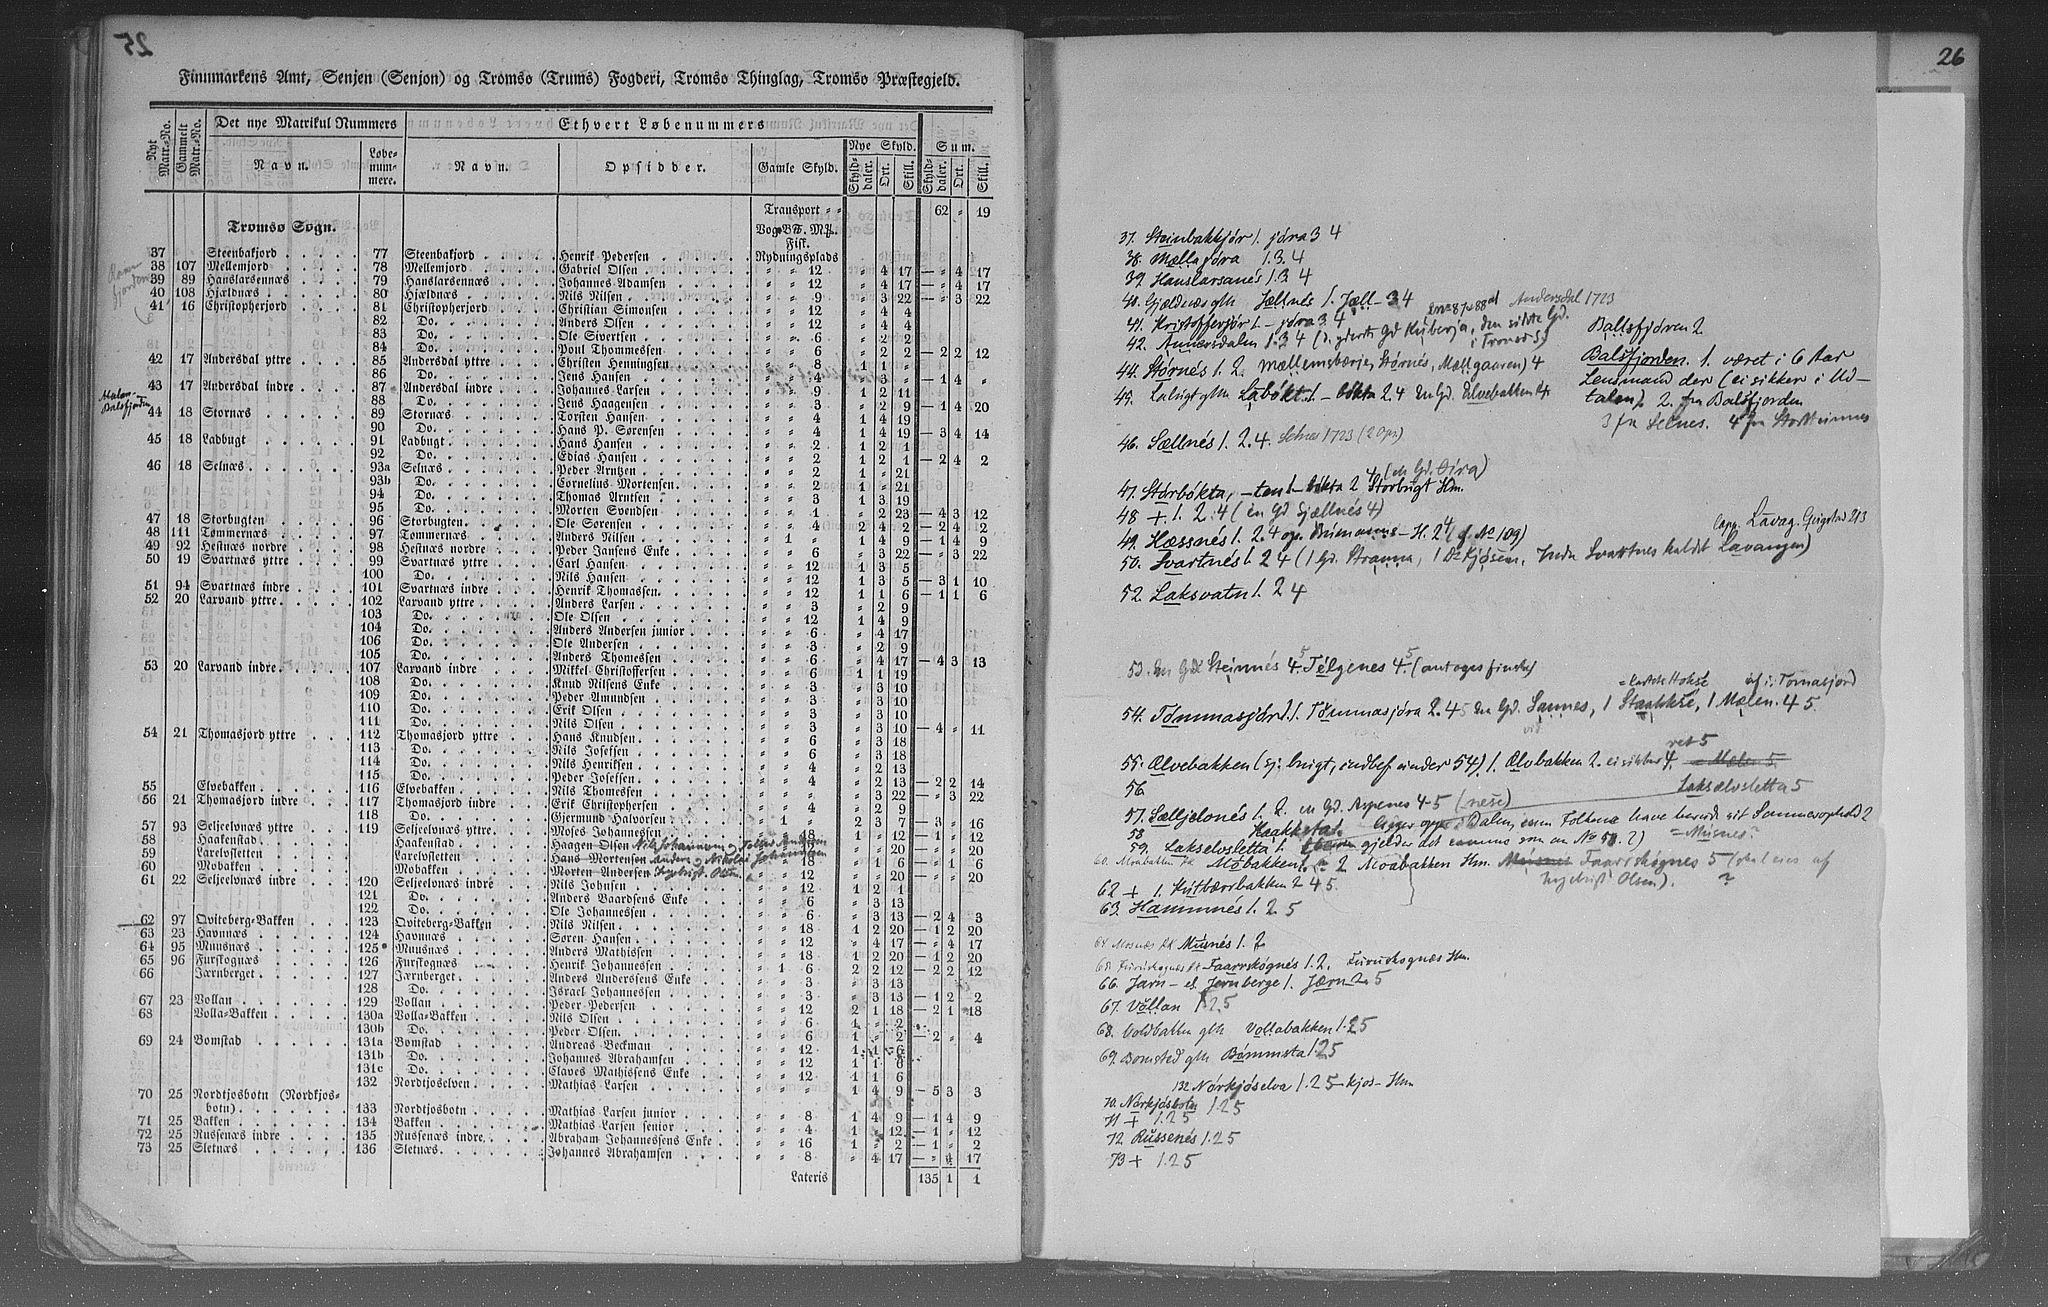 25
Finnmarkens Amt, Senjen (Senjon) og Tromsø (Trums) Fogderi, Tromsø Thinglag, Tromsø Præstegjeld.
Nyt Matr.-No. Gammelt Matr.-No. Det nye Matrikul Nummers Ethvert Løbenummers
Navn. Løbe-num-mere. Navn. Opsidder. Gamle Skyld. Nye Skyld. Sum.
Skyld-daler. Ort. Skill. Skyld-daler. Ort. Skill.
Transport 62 " 19
Tromsø Sogn.
Fisk.
37 Steenbakjord 77 Steenbakjord Henrik Pedersen Rydningsplads
38 107 Mellemjord 78 Mellemjord Gabriel Olsen " " 12 " 4 17 — " 4 17
39 89 Hanslarsennæs 79 Hanslarsennæs Johannes Adamsen " " 12 " 4 17 — " 4 17
40 108 Hjældnæs 80 Hjældnæs Nils Nilsen " " 9 " 3 22 — " 3 22
41 16 Christopherjord 81 Christopherjord Christian Simonsen " " 12 " 4 4
82 Do. Anders Olsen " " 12 " 4 4
83 Do. Ole Sivertsen " " 6 " 2 2
84 Do. Poul Thommessen " " 6 " 2 2 — 2 2 12
42 17 Andersdal yttre 85 Andersdal yttre Christen Henningsen " " 8 1 1 "
86 Do. Jens Hansen " " 4 " 3 " — 1 4 "
43 17 Andersdal indre 87 Andersdal indre Johannes Larsen " " 9 1 2 11
88 Do. Jens Haagensen " " 3 " 2 9 — 1 4 20
44 18 Stornæs 89 Stornæs Torsten Hansen " " 4 1 4 19
90 Do. Hans P. Sørensen " " 4 1 4 19 — 3 4 14
45 18 Ladbugt 91 Ladbugt Hans Hansen " " 2 1 2 1
92 Do. Edias Hansen " " 2 1 2 1 — 2 4 2
46 18 Selnæs 93a Selnæs Peder Arntzen " " 2 1 " 21
93b Do. Cornelius Mortensen " " 2 1 " 21
94 Do. Thomas Arntsen " " 3 1 3 19
95 Do. Morten Svendsen " " 1 " 2 23 — 4 3 12
47 18 Storbugten 96 Storbugten Ole Sørensen " " 4 2 4 2 — 2 4 2
48 111 Tømmernæs 97 Tømmernæs Anders Nilsen " 1 " 1 4 9 — 1 4 9
49 92 Hestnæs nordre 98 Hestnæs nordre Peder Jansens Enke " " 6 " 3 22 — " 3 22
50 19 Svartnæs yttre 99 Svartnæs yttre Carl Hansen " " 12 1 3 5
100 Do. Nils Hansen " " 12 1 3 5 — 3 1 10
51 94 Svartnæs indre 101 Svartnæs indre Henrik Thomassen " " 12 1 1 6 — 1 1 6
52 20 Larvand yttre 102 Larvand yttre Anders Larsen " " 3 " 2 9
103 Do. Ole Olsen " " 12 1 4 9
104 Do. Anders Andersen junior " " 6 " 4 17
106 Do. Ole Andersen " " 3 " 2 9
105 Do. Anders Thomessen " " 6 " 4 17 — 4 3 13
53 20 Larvand indre 107 Larvand indre Mikkel Christoffersen " " 6 1 1 19
108 Do. Knud Nilsens Enke " " 3 " 3 10
109 Do. Peder Amundsen " " 3 " 3 10
110 Do. Erik Olsen " " 3 " 3 10
111 Do. Nils Olsen " " 3 " 3 10 — 4 " 11
54 21 Thomasjord yttre 112 Thomasjord yttre Hans Knudsen " " 6 " 3 18
113 Do. Nils Josefsen " " 6 " 3 18
114 Do. Nils Henriksen " " 4 " 2 13
115 Do. Peder Josefsen " " 4 " 2 13 — 2 2 14
55 Elvebakken 116 Elvebakken Nils Thomesen " " " " 3 22 — " 3 22
56 21 Thomasjord indre 117 Thomasjord indre Erik Christophersen " " 4 " 2 9
118 Do. Gjermund Halvorsen " 1 " 2 3 7 — 3 " 16
57 93 Seljeelvnæs yttre 119 Seljeelvnæs yttre. Moses Johannesen " " 18 1 " 12 — 1 " 12
58 Haakenstad Haakenstad Haagen Olsen
59 Laxelvsletten Laxelvsletten Hans Mortensen
60 Mobakken Mobakken Morten Andersen
61 22 Seljeelvnæs indre 120 Seljeelvnæs indre Nils Johnsen " " 12 1 2 1
121 Do. Anders Baardsens Enke " " 6 " 3 13
122 Do. Ole Johannessen " " 6 " 3 13 — 2 4 3
62 97 Qviteberg-Bakken 123 Qviteberg-Bakken Nils Nilsen " " 18 1 2 20 — 1 2 20
63 23 Havnnæs 124 Havnnæs Søren Hansen " " 12 " 4 17 — " 4 17
64 95 Muusnæs 125 Muusnæs Anders Mathissen " " 18 1 2 20 — 1 2 20
65 96 Furskognæs 126 Furskognæs Henrik Johannessen " 1 6 2 2 12 — 2 2 12
66 Jærnberget 127 Jærnberget Anders Anderssens Enke " " 6 " 3 13
128 Do. Israel Johannessen " " 6 " 3 13 — 1 2 2
67 23 Vollan 129 Vollan Peder Pedersen " " 12 2 1 18 — 2 1 18
68 Volla-Bakken 130a Volla-Bakken Nils Olsen " " 6 1 " 2
130b Do. Peder Olsen " " 6 1 " 2 — 2 " 4
69 24 Bomstad 131a Bomstad Andreas Beckman " " 12 1 1 6
131b Do. Johannes Abrahamsen " " 12 1 1 6
131c Do. Claves Mathissens Enke " " 12 1 1 6
132 Nordkjoselven Mathias Larsen " " " 1 4 9 — 5 3 3
70 25 Nordkjosbotn (Nordkjos-botn) 133 Nordkjosbotn Mathias Larsen junior " " 8 1 4 9 — 1 4 9
71 25 Bakken 134 Bakken Mathias Larsen senior " " 4 1 " 12 — 1 " 12
72 25 Russenæs indre 135 Russenæs indre Abraham Johannessens Enke " " 16 1 " 2 — 1 " 2
73 25 Sletnæs 136 Sletnæs Johannes Abrahamsen " " 8 " 4 17 — " 4 17
Lateris 135 1 1
26
37. Steinbakkjór 1. jóra 3 4
38. Mællajóra 1.3.4
39. Hanslarsanés 1.3 4
40. Gjældnæs glh Jællnés 1. Jæll- 3 4
41. Kristofferjór 1. - jóra 3. 4
Andersdal 1723
42. Annersdalen 1.3 4
44. Stórnés 1. 2. mællemebærje, Stórnés, Mællgaaren) 4
45. Labugt glh Labókt 1. - bókta 2.4 en Gd. Elvebakken 4.
Ballsfjóren 2
Balsfjorden. 1. været i 6 Aar
Lensmand der (ei sikker i Ud-
talen). 2. fra Balsfjorden
3 fra Selnes. 4 fra Stortteinnes
46. Sællnés 1. 2. 4. Selnes 1723 (2 ops)
47. Stórbókta, -ten 1 - bókta 2 4 (en Gd. Øira) Storbugt Hm.
48 + 1. 2. 4 (en Gd Sjællnés 4)
49. Hæssnés 1. 2. 4
50. Svartnés 1. 2 4 (1 Gd. Stranna, 1 Do Kjósen, Indre Svartnes kaldt Lavangen)
52. Laksvatn 1. 2 4
53. en Gd Steinnés 4 5 Télgenes 4 5 (antages findes)
54. Tómmasjórd 1. Tómmasjóra 2. 4 5 en Gd. Sannes, 1 Staakkse, 1 Mælen. 4 5
55. Ælvebakken (ej brugt, indbef. under 54). 1. Ælvbakken 2. ei sikker 4. ret 5
56.
Laksælvsletta 5
57. Sælljelonés 1. 2. en Gd. Aspenes 4-5 (nese)
58 Haakkstad. ligger oppe i Dalen,
59. Lakselvsletta 1.
60. Mobakken 1. 2 Moabakken Hm. Faarrskógnes 5
Ingebrigt Olsen). ?
62 + 1. Kvitbærrbakken 2 4 5.
63. Hammnés 1. 2. 5
64 Mosnæs Musnés 1. 2
65 Furuskognes Faarrskógnés 1. 2. Furuskognæs Hm.
66. Jarn- el. Jernberge 1. Jærn 2. 5
67. Vóllan 1 2 5
68. Voldbakken glh Vollabakken 1. 2 5
69. Bomsted glh Bómmsta 1. 2 5
132 Nórkjóselva 1. 2 5 -kjos- Hm
70. Nórkjósbotn 1. 2 5
71 + 1. 2 5
72. Russenés 1. 2 5
73 + 1. 2 5